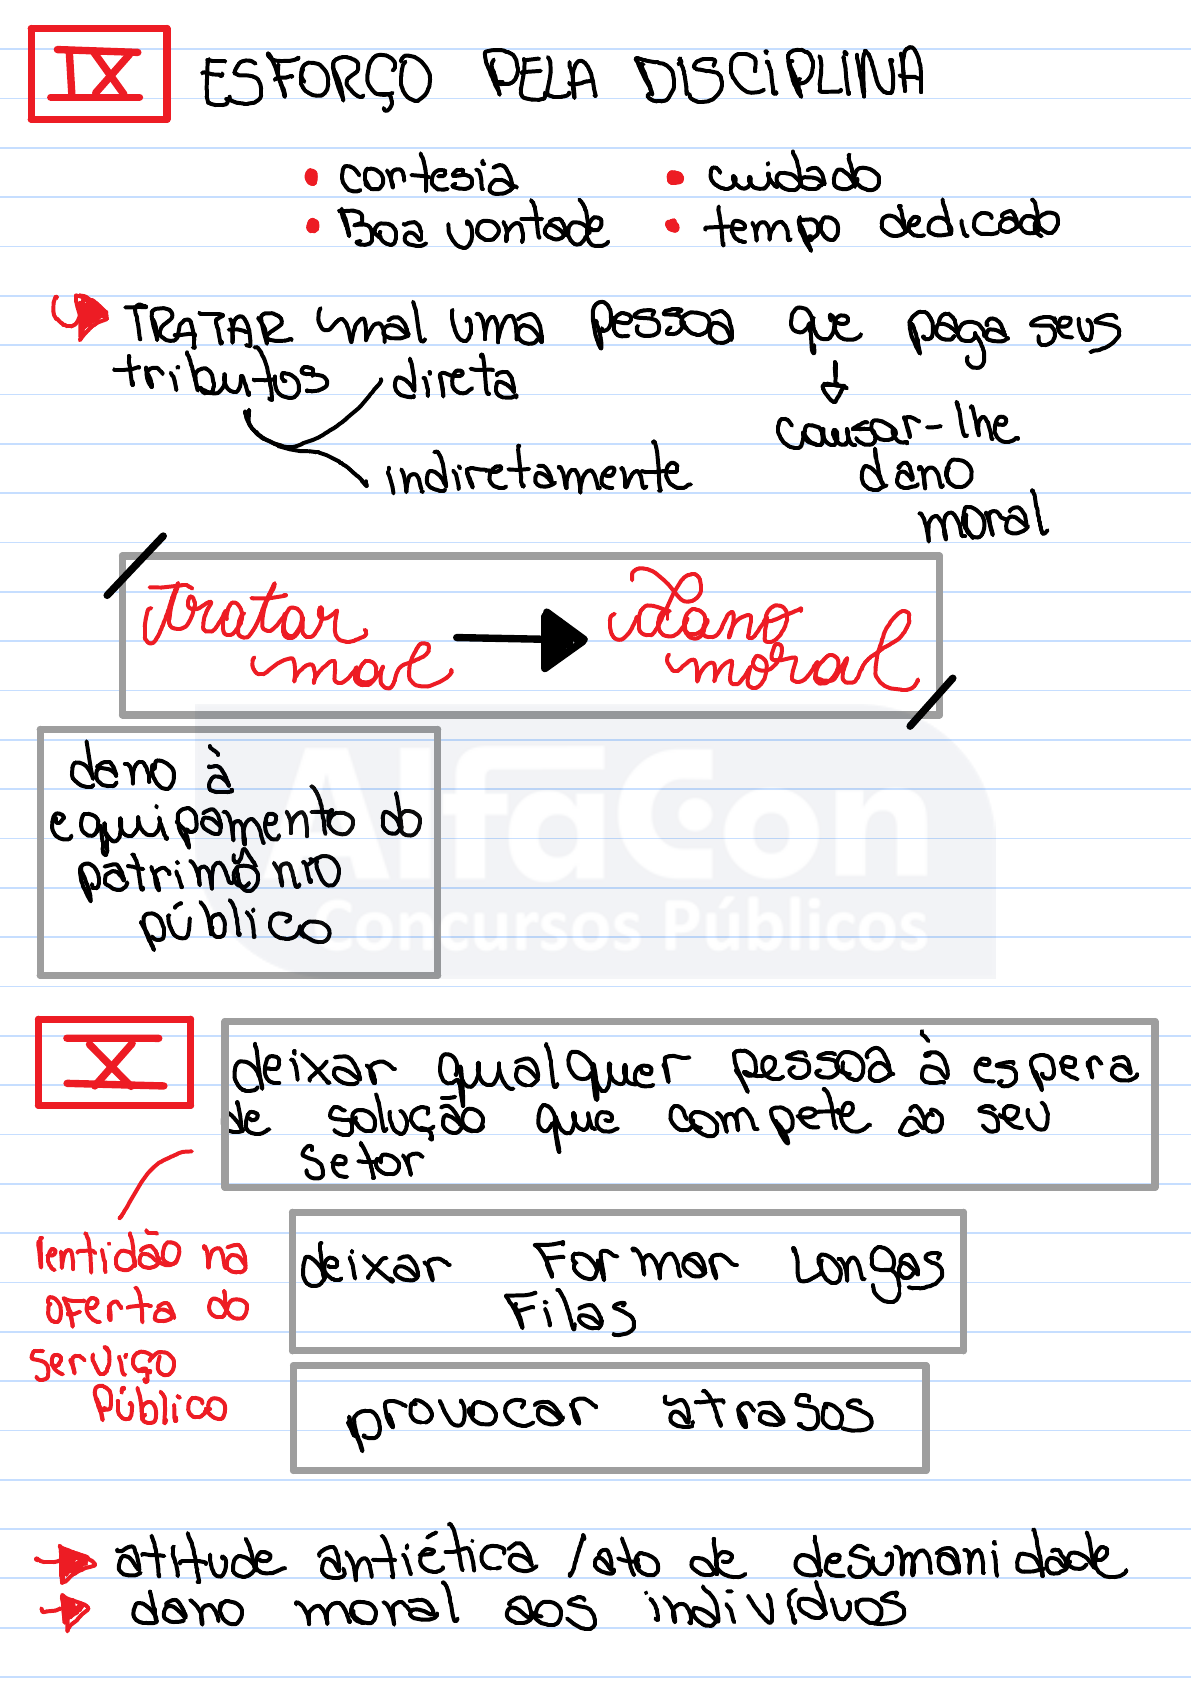 IX ESFORÇO PELA DISCIPLINA
• cortesia • cuidado
• Boa vontade • tempo dedicado
TRATAR mal uma pessoa que paga seus
tributos direta
causar-lhe
indiretamente dano
moral
tratar dano
mal moral
dano à
equipamento do
patrimônio
público
AlfaCon
Concursos Públicos
X deixar qualquer pessoa à espera
de solução que compete ao seu
setor
lentidão na
oferta do
serviço
Público
deixar Formar Longas
Filas
provocar atrasos
atitude antiética / ato de desumanidade
dano moral aos indivíduos